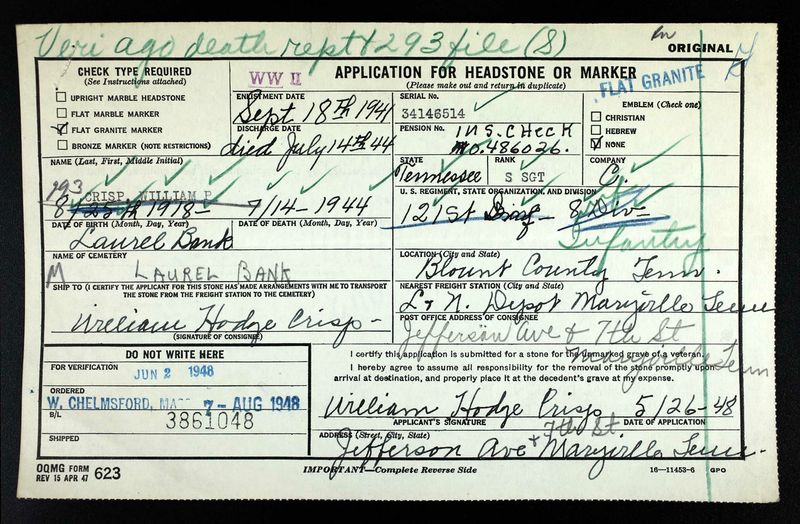 Veri ago death rept & 293 file (S)
ORIGINAL
CHECK TYPE REQUIRED
(See Instructions attached)
UPRIGHT MARBLE HEADSTONE
FLAT MARBLE MARKER
FLAT GRANITE MARKER
BRONZE MARKER (NOTE RESTRICTIONS)
WW II
APPLICATION FOR HEADSTONE OR MARKER
(Please make out and return in duplicate)
FLAT GRANITE
ENLISTMENT DATE
Sept 18th 1941
DISCHARGE DATE
died July 14th 44
SERIAL NO.
34146514
PENSION No.
INS. CHECK
NO. 486026.
EMBLEM (Check one)
CHRISTIAN
HEBREW
NONE
NAME (Last, First, Middle Initial)
293 CRISP, WILLIAM P
STATE
Tennessee
RANK
S SGT
COMPANY
C.
8 1918- 7/14-1944
DATE OF BIRTH (Month, Day, Year)
DATE OF DEATH (Month, Day, Year)
U. S. REGIMENT, STATE ORGANIZATION, AND DIVISION
121St Inf 8 Div
Infantry
Laurel Bank
NAME OF CEMETERY
M LAUREL BANK
LOCATION (City and State)
Blount County Tenn.
SHIP TO (I CERTIFY THE APPLICANT FOR THIS STONE HAS MADE ARRANGEMENTS WITH ME TO TRANSPORT
THE STONE FROM THE FREIGHT STATION TO THE CEMETERY)
NEAREST FREIGHT STATION (City and State)
L & N. Depot Maryville Tenn
William Hodge Crisp
(SIGNATURE OF CONSIGNEE)
POST OFFICE ADDRESS OF CONSIGNEE
Jefferson Ave & 7th St
Maryville Tenn
DO NOT WRITE HERE
FOR VERIFICATION
JUN 2 1948
ORDERED
W. CHELMSFORD, MASS 7-AUG 1948
B/L
3861048
SHIPPED
I certify this application is submitted for a stone for the unmarked grave of a veteran.
I hereby agree to assume all responsibility for the removal of the stone promptly upon
arrival at destination, and properly place it at the decedent's grave at my expense.
William Hodge Crisp 5/26-48
APPLICANT'S SIGNATURE
DATE OF APPLICATION
ADDRESS (Street, City, State)
7th St
Jefferson Ave + Maryville Tenn.
OQMG FORM
REV 15 APR 47 623
IMPORTANT—Complete Reverse Side
16-11453-6 GPO